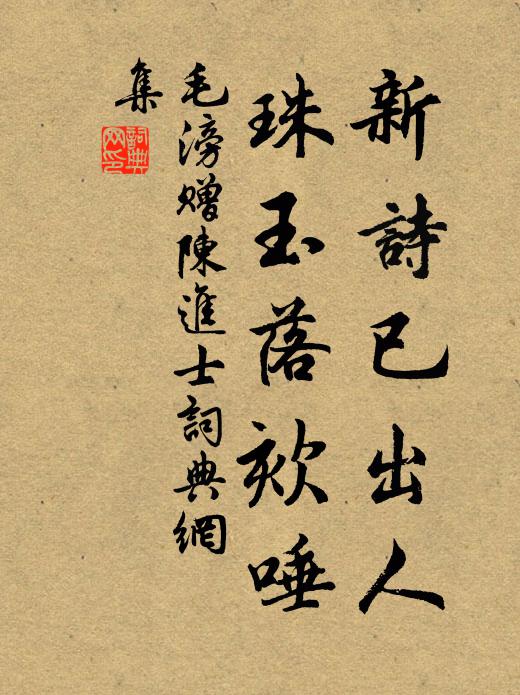 新詩已出人
珠玉落欬唾
毛滂贈陳進士詞典網
集
詞典
网印